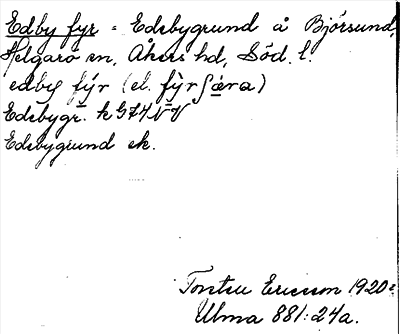 Edby fyr = Edebygrund å Björsund,
Helgarö sn, Åkers hd, Söd. l.
edby fýr (el. fỳrʃæra)
Edebygr. k G74 NV
Edebygrund ek.
Torsten Ericsson 1920
Ulma 881:24a.